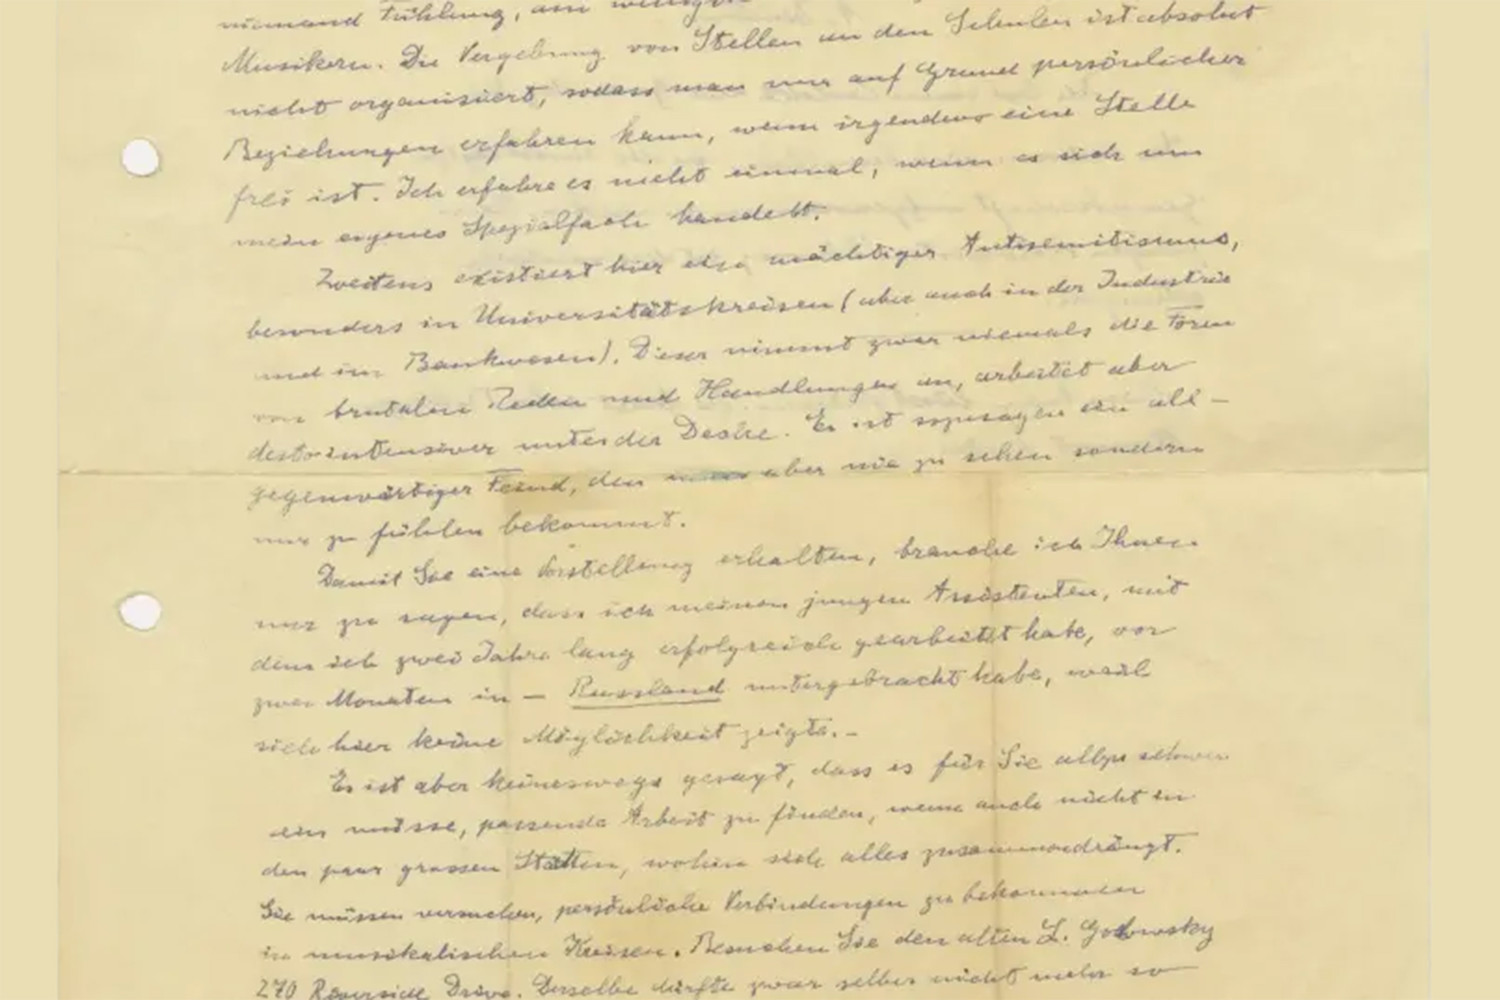 niemand Fühlung, am wenigsten
Musikern. Die Vergebung von Stellen an den Schulen ist absolut
nicht organisiert, sodass man nur auf Grund persönlicher
Beziehungen erfahren kann, wenn irgendwo eine Stelle
frei ist. Ich erfahre es nicht einmal, wenn es sich um
mein eigenes Spezialfach handelt.
Zweitens existiert hier ein mächtiger Antisemitismus,
besonders in Universitätskreisen (aber auch in der Industrie
und im Bankwesen). Dieser nimmt zwar niemals die Form
von brutalen Reden und Handlungen an, arbeitet aber
desto intensiver unter der Decke. Es ist sozusagen ein all-
gegenwärtiger Feind, den man aber nie zu sehen sondern
nur zu fühlen bekommt.
Damit Sie eine Vorstellung erhalten, brauche ich Ihnen
nur zu sagen, dass ich meinen jungen Assistenten, mit
dem ich zwei Jahre lang erfolgreich gearbeitet habe, vor
zwei Monaten in – Russland untergebracht habe, weil
sich hier keine Möglichkeit zeigte. –
Es ist aber keineswegs gesagt, dass es für Sie allzu schwer
sein müsse, passende Arbeit zu finden, wenn auch nicht in
den paar grossen Städten, wohin sich alles zusammendrängt.
Sie müssen versuchen, persönliche Verbindungen zu bekommen
in musikalischen Kreisen. Besuchen Sie den alten L. Godowsky
270 Riverside Drive. Derselbe dürfte zwar selber nicht mehr so